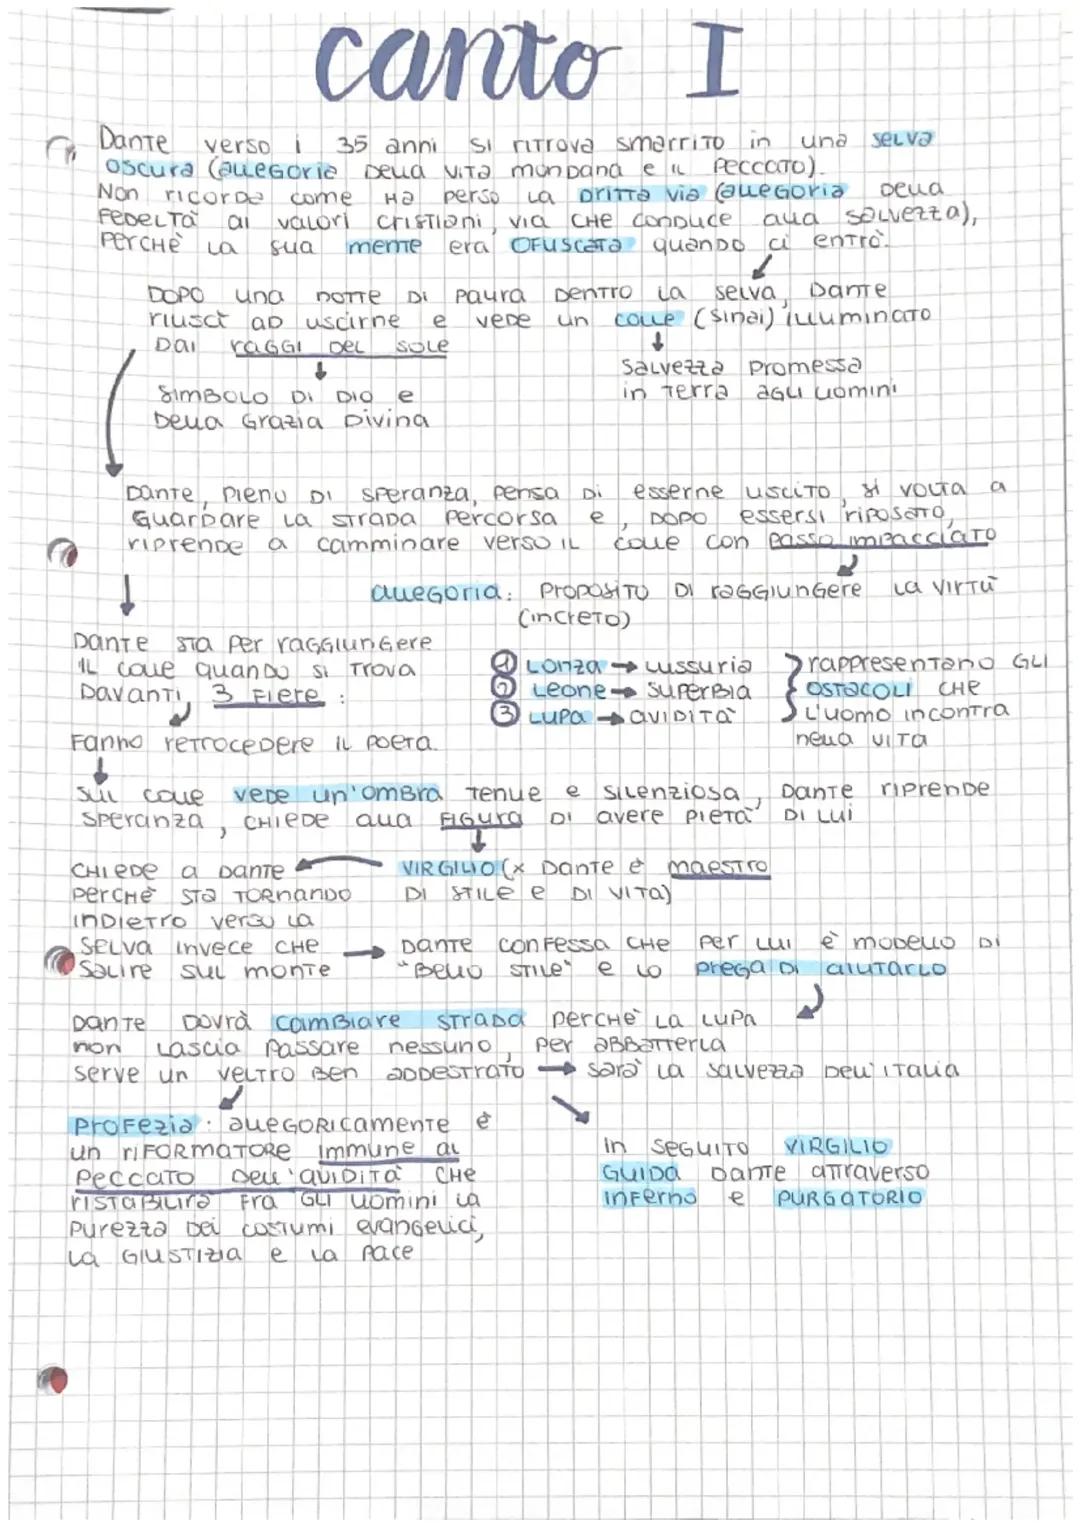 canto I
Dante verso i 35 anni si ritrova smarrito in una selva
oscura (allegoria della vita mondana e il peccato).
Non ricorda come ha perso la dritta via (allegoria della
fedeltà ai valori cristiani, via che conduce alla salvezza),
perchè la sua mente era ofuscata quando ci entrò.
Dopo una notte di paura dentro la selva, Dante
riusct ad uscirne e vede un colle (sinai) illuminato
dai raggi del sole
salvezza promessa
in terra agli uomini
simbolo di Dio e
della Grazia Divina
Dante, pieno di speranza, pensa di esserne uscito, si volta a
guardare la strada percorsa e, dopo essersi riposato,
riprende a camminare verso il colle con passo impacciato
allegoria: proposito di raggiungere la virtù
(increto)
Dante sta per raggiungere
il colle quando si trova
davanti 3 fiere:
1 Lonza → lussuria
2 Leone → superbia
3 Lupa → avidità
rappresentano gli
ostacoli che
l'uomo incontra
nella vita
Fanno retrocedere il poeta.
Sul colle vede un'ombra tenue e silenziosa, Dante riprende
speranza, chiede alla figura di avere pietà di lui
VIRGILIO (x Dante è maestro
di stile e di vita)
chiede a Dante
perchè sta tornando
indietro verso la
selva invece che
salire sul monte
→ Dante confessa che per lui è modello di
"bello stile" e lo prega di aiutarlo
Dante dovrà cambiare strada perchè la lupa
non lascia passare nessuno, per abbatterla
serve un veltro ben addestrato → sarà la salvezza dell'Italia
Profezia: allegoricamente è
un riformatore immune al
peccato dell'avidità che
ristabilirà fra gli uomini la
purezza dei costumi evangelici,
la giustizia e la pace
In seguito VIRGILIO
GUIDA Dante attraverso
inferno e PURGATORIO